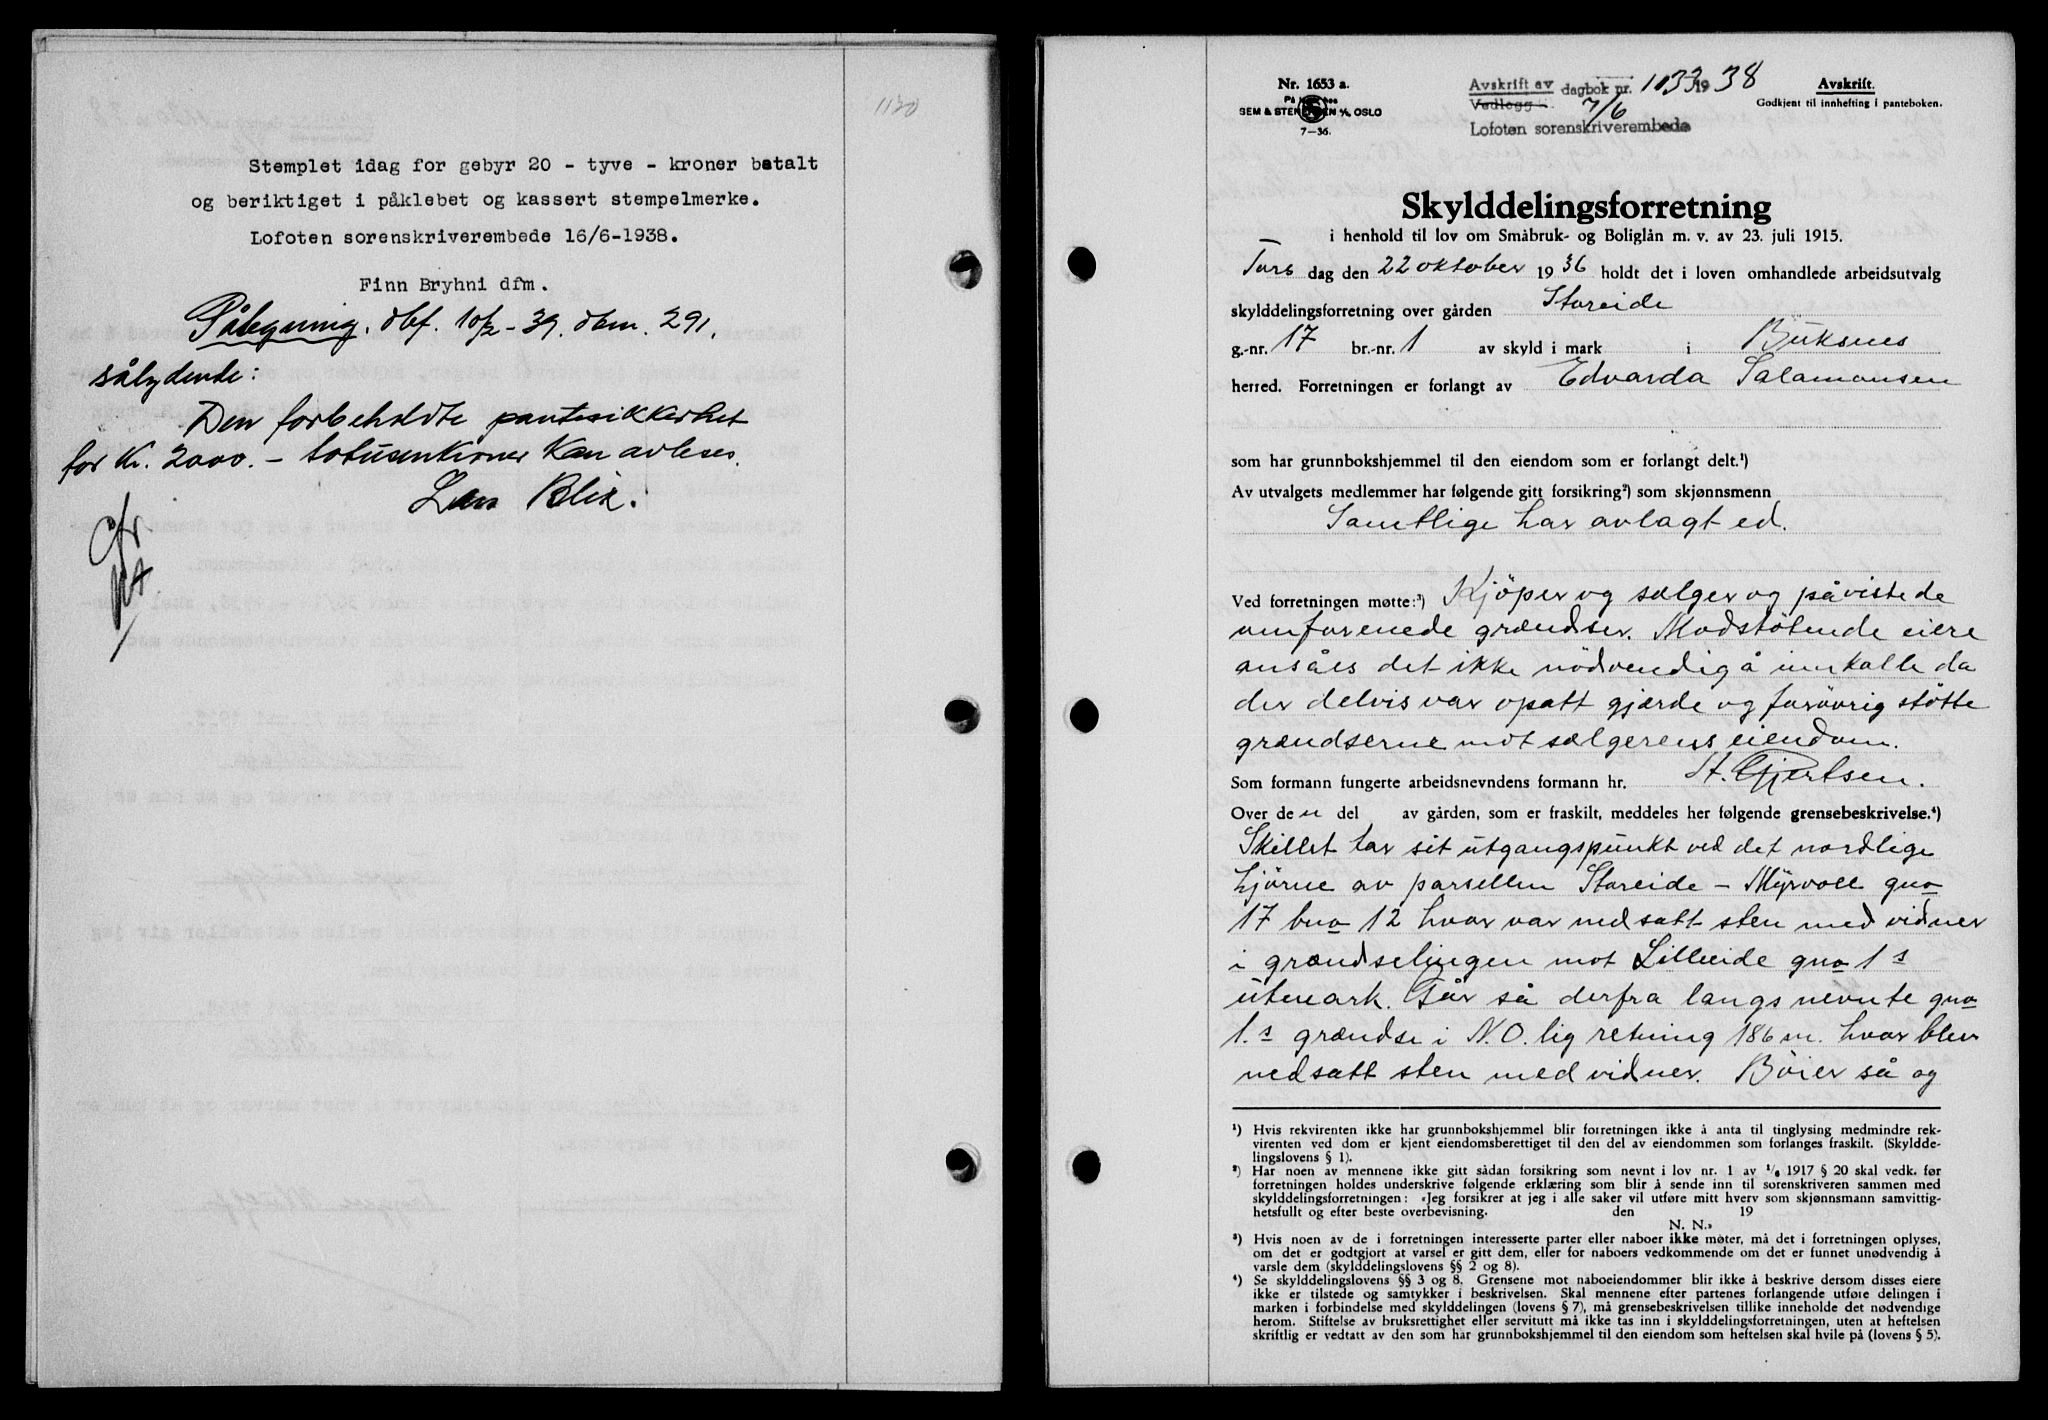 1130
Stemplet idag for gebyr 20 - tyve - kroner betalt
og beriktiget i påklebet og kassert stempelmerke.
Lofoten sorenskriverembede 16/6-1938.
Finn Bryhni dfm.
Påtegning, dbf. 10/2-39. dbnr. 291,
sålydende:
Den forbeholdte pantesikkerhet
for kr. 2000.- totusenkroner kan avleses.
Lars Blix.
Nr. 1653 a.
SEM & STENERSEN A/S OSLO
7-36.
Avskrift av dagbok nr. 1033 1938
Vedlegg 7/6
Lofoten sorenskriverembede
Avskrift.
Godkjent til innhefting i panteboken.
Skylddelingsforretning
i henhold til lov om Småbruk- og Boliglån m. v. av 23. juli 1915.
Tors dag den 22 oktober 1936 holdt det i loven omhandlede arbeidsutvalg
skylddelingsforretning over gården Storeide
g.-nr. 17 br.-nr. 1 av skyld i mark i Buksnes
herred. Forretningen er forlangt av Edvarda Salamonsen
som har grunnbokshjemmel til den eiendom som er forlangt delt.¹)
Av utvalgets medlemmer har følgende gitt forsikring²) som skjønnsmenn
Samtlige har avlagt ed.
Ved forretningen møtte:³) Kjöper og sælger og påviste de
omforenede grændser. Modstötende eiere
ansåes det ikke nödvendig å innkalle da
der delvis var opsatt gjærde og forövrig stötte
grændserne mot sælgerens eiendom.
Som formann fungerte arbeidsnevndens formann hr. H. Gjertsen.
Over de n del av gården, som er fraskilt, meddeles her følgende grensebeskrivelse.⁴)
Skillet tar sit utgangspunkt ved det nordlige
hjörne av parsellen Storeide - Myrvoll gno
17 bno 12 hvor var nedsatt sten med vidner
i grændselingen mot Lilleeide gno 1s
utmark. Går så derfra langs nevnte gno
1.s grændse i N.O. lig retning 186 m. hvor blev
nedsatt sten med vidner. Böier så og
¹) Hvis rekvirenten ikke har grunnbokshjemmel blir forretningen ikke å anta til tinglysing medmindre rek-
virenten ved dom er kjent eiendomsberettiget til den del av eiendommen som forlanges fraskilt. (Skyldde-
lingslovens § 1).
²) Har noen av mennene ikke gitt sådan forsikring som nevnt i lov nr. 1 av 1/6 1917 § 20 skal vedk. før
forretningen holdes underskrive følgende erklæring som blir å sende inn til sorenskriveren sammen med
skylddelingsforretningen: «Jeg forsikrer at jeg i alle saker vil utføre mitt hverv som skjønnsmann samvittig-
hetsfullt og efter beste overbevisning. den 19
N. N.»
³) Hvis noen av de i forretningen interesserte parter eller naboer ikke møter, må det i forretningen oplyses,
om det er godtgjort at varsel er gitt dem, eller for naboers vedkommende om det er funnet unødvendig å
varsle dem (skylddelingslovens §§ 2 og 8).
⁴) Se skylddelingslovens §§ 3 og 8. Grensene mot naboeiendommer blir ikke å beskrive dersom disses eiere
ikke er tilstede og samtykker i beskrivelsen. Skal mennene efter partenes forlangende utføre delingen i
marken i forbindelse med skylddelingen (lovens § 7), må grensebeskrivelsen tillike inneholde det nødvendige
herom. Stiftelse av bruksrettighet eller servitutt må ikke tas inn i skylddelingsforretningen, uten at heftelsen
skriftlig er vedtatt av den som har grunnbokshjemmel til den eiendom som heftelsen skal hvile på (lovens § 5).